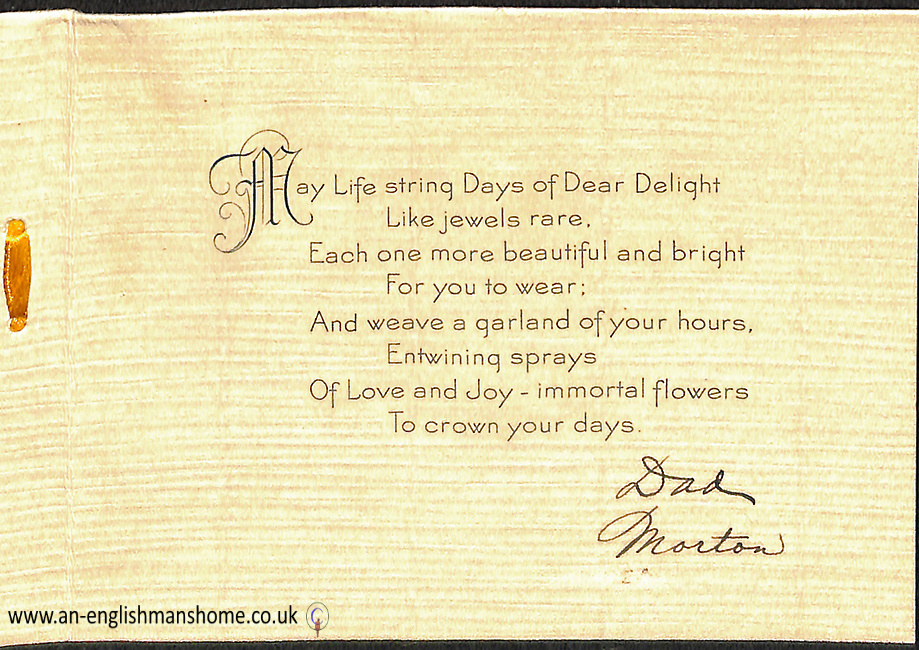 May Life string Days of Dear Delight
Like jewels rare,
Each one more beautiful and bright
For you to wear;
And weave a garland of your hours,
Entwining sprays
Of Love and Joy - immortal flowers
To crown your days.
Dad
Morton
www.an-englishmanshome.co.uk